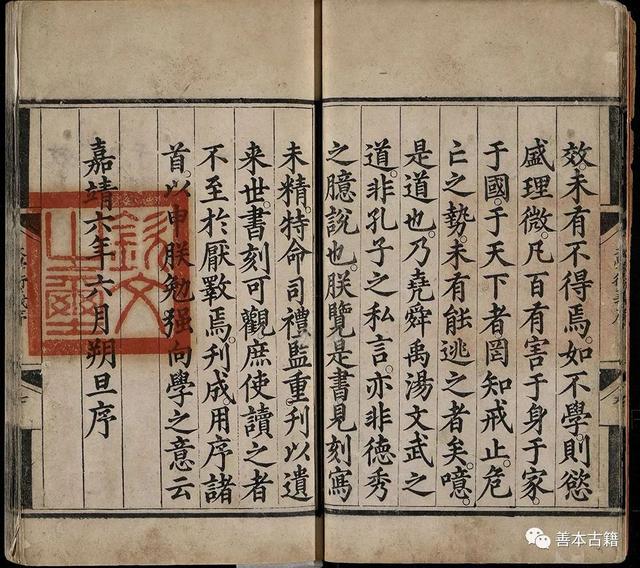 效未有不得焉。如不學。則慾
盛理微。凡百有害于身于家。
于國。于天下者。罔知戒止。危
亡之勢。未有能逃之者矣。噫。
是道也。乃堯舜禹湯文武之
道。非孔子之私言。亦非德秀
之臆說也。朕覽是書。見刻寫
未精。特命司禮監重刋。以遺
来世。書刻可觀。庶使讀之者
不至於厭斁焉。刋成。用序諸
首。以申朕勉强向學之意云
嘉靖六年六月朔旦序
欽文之璽
善本古籍